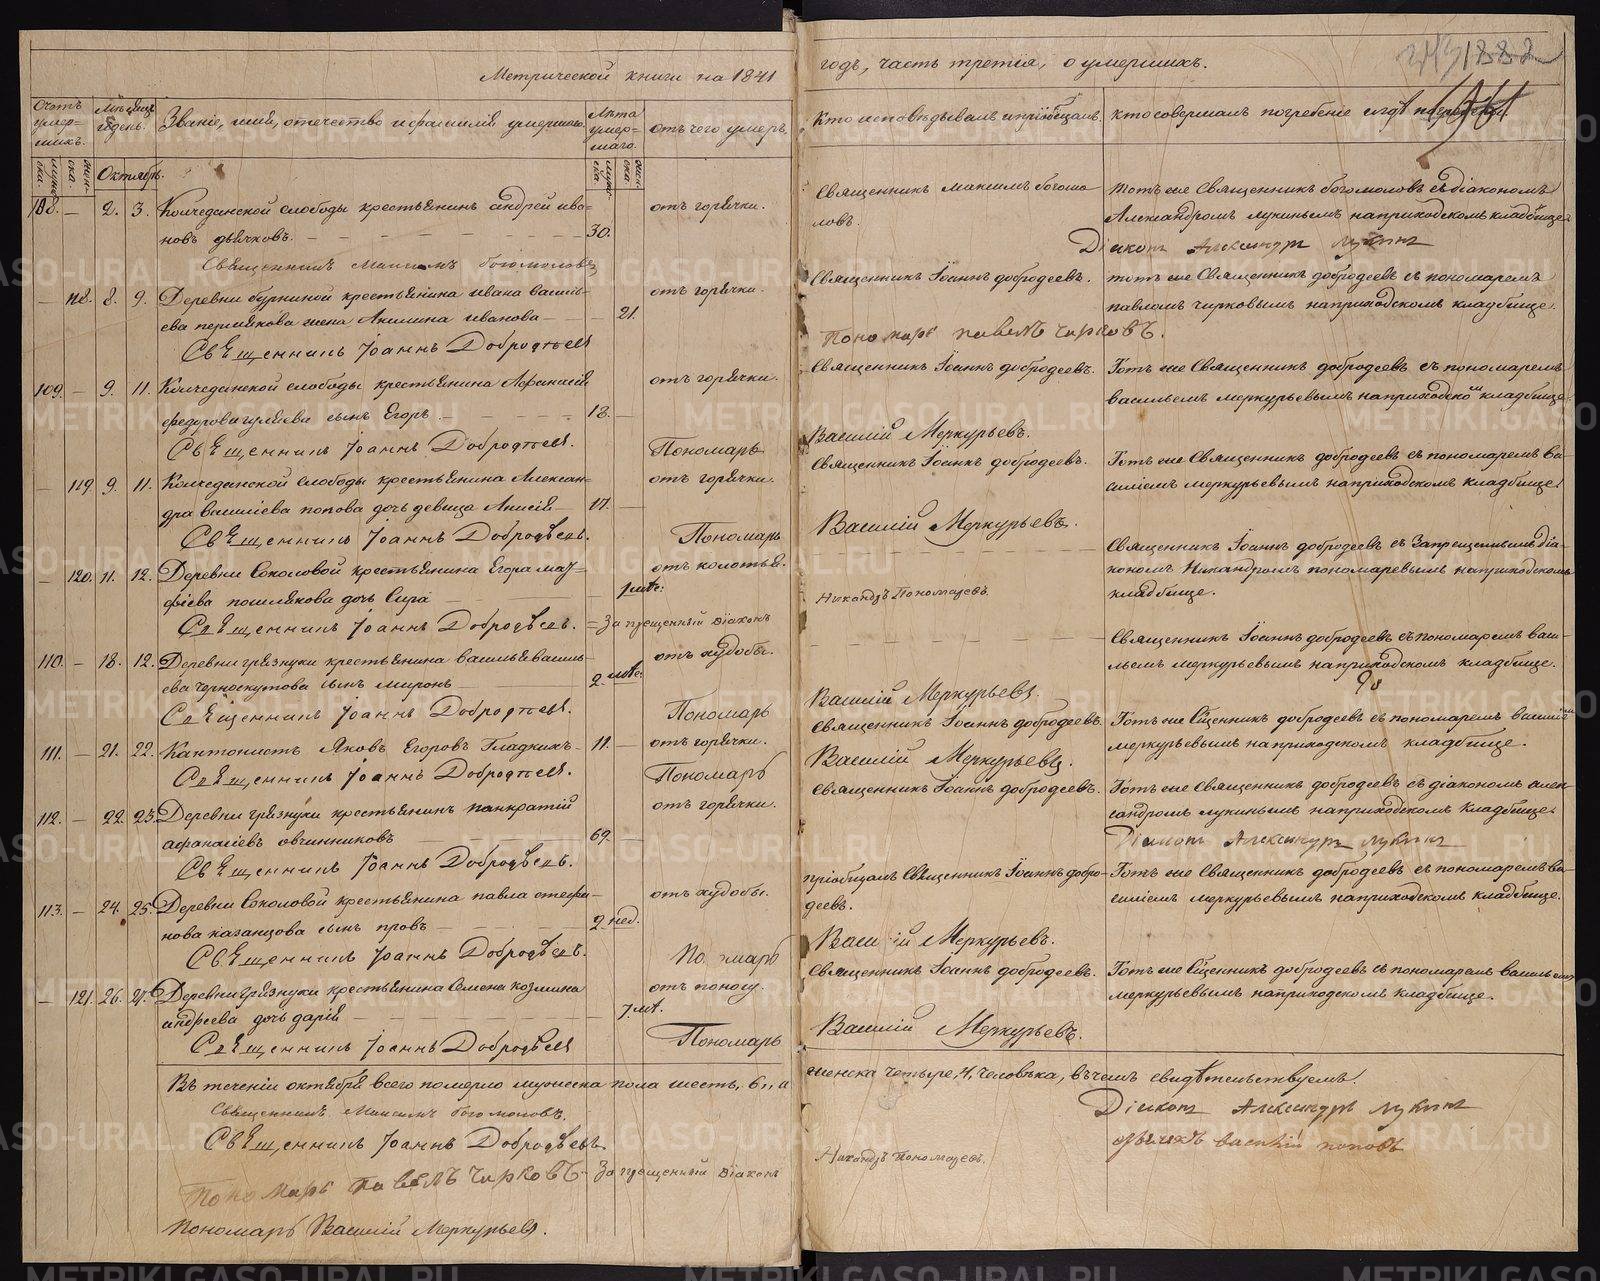 Метрической книги на 1841
Счетъ умер-
шихъ.
Мѣсяцъ
и день.
Званіе, имя, отечество и фамилія умершаго.
Лѣта
умер-
шаго.
отъ чего умеръ.
муже-
ска.
жен-
ска.
Октябрь.
муже-
ска.
жен-
ска.
108. — 2. 3. Колчеданской слободы крестьянинъ андрей ива- отъ горячки.
новъ дьячковъ. 30.
Священникъ Максимъ богомоловъ
— 118. 8. 9. Деревни бурниной крестьянина ивана василь- отъ горячки.
ева пермякова жена Акилина иванова — 21.
Священникъ Іоаннъ Добродѣевъ
109. — 9. 11. Колчеданской слободы крестьянина Афанасія отъ горячки.
федорова гуляева сынъ Егоръ. 18. —
Священникъ Іоаннъ Добродѣевъ. Пономарь
119. 9. 11. Колчеданской слободы крестьянина Алексан- отъ горячки.
дра василіева попова дочь девица Анисія 17. —
Священникъ Іоаннъ Добродѣевъ. Пономарь
— 120. 11. 12. Деревни Соколовой крестьянина Егора мат- отъ колотья.
фіева пошлякова дочь Сира 1 лѣт:
Священникъ Іоаннъ Добродѣевъ. = Запрещенный діаконъ
110. — 18. 12. Деревни грязнухи крестьянина василья василь- отъ худобы.
ева черноскутова сынъ миронъ 2 лѣт:
Священникъ Іоаннъ Добродѣевъ. Пономарь
111. — 21. 22. Кантонистъ Яковъ Егоровъ Гладкихъ 11. — отъ горячки.
Священникъ Іоаннъ Добродѣевъ. Пономарь
112. — 22. 23. Деревни грязнухи крестьянинъ панкратій отъ горячки.
афанасіевъ овчинниковъ 69. —
Священникъ Іоаннъ Добродѣевъ.
113. — 24. 25. Деревни Соколовой крестьянина павла стефа- отъ худобы.
нова казанцова сынъ провъ 2 нед.
Священникъ Іоаннъ Добродѣевъ. Пономарь
— 121. 26. 27. Деревни грязнухи крестьянина Семена козмина отъ поносу.
андреева дочь дарія 7 лѣт.
Священникъ Іоаннъ Добродѣевъ Пономарь
Въ теченіи октября всего померло мужеска пола шесть, 6,, а
Священникъ Максимъ богомоловъ.
Священникъ Іоаннъ Добродѣевъ
Пономарь павелъ Чирковъ - Запрещенный діаконъ
Пономарь Василій Меркурьевъ.
годъ, часть третія, о умершихъ.
1882
Кто исповѣдывалъ и пріобщалъ.
кто совершалъ погребеніе и гдѣ погребены.
Священникъ максимъ богомо- тотъ же Священникъ богомоловъ съ діакономъ
ловъ. Александромъ лукинымъ на приходскомъ кладбище.
Діаконъ Александръ лукинъ
Священникъ Іоаннъ добродеевъ. тотъ же Священникъ добродеевъ съ пономаремъ
павломъ чирковымъ на приходскомъ кладбище.
Пономарь павелъ Чирковъ.
Священникъ Іоаннъ добродеевъ. Тотъ же Священникъ добродеевъ съ пономаремъ
васильемъ меркурьевымъ на приходскомъ кладбище.
Василій Меркурьевъ.
Священникъ Іоаннъ добродеевъ. Тотъ же Священникъ добродеевъ съ пономаремъ ва-
силіемъ меркурьевымъ на приходскомъ кладбище.
Василій Меркурьевъ.
Священникъ Іоаннъ добродеевъ съ Запрещеннымъ діа-
кономъ Никандромъ пономаревымъ на приходскомъ
Никандръ Пономаревъ. кладбище.
Священникъ Іоаннъ добродеевъ съ пономаремъ васи-
льемъ меркурьевымъ на приходскомъ кладбище.
Василій Меркурьевъ.
Священникъ Іоаннъ добродеевъ. Тотъ же Сщенникъ добродеевъ съ пономаремъ василіемъ
меркурьевымъ на приходскомъ кладбище.
Василій Меркурьевъ.
Священникъ Іоаннъ добродеевъ. Тотъ же Священникъ добродеевъ съ діакономъ алек-
сандромъ лукинымъ на приходскомъ кладбище.
Діаконъ Александръ лукинъ
пріобщалъ Священникъ Іоаннъ добро- Тотъ же Священникъ добродеевъ съ пономаремъ ва-
деевъ. силіемъ меркурьевымъ на приходскомъ кладбище.
Василій Меркурьевъ.
Священникъ Іоаннъ добродеевъ. Тотъ же Сщенникъ добродеевъ съ пономаремъ васильемъ
меркурьевымъ на приходскомъ кладбище.
Василій Меркурьевъ.
женска четыре, 4, человѣка, въ чемъ свидѣтельствуемъ.
Діаконъ Александръ лукинъ
Никандръ Пономаревъ. дьячекъ василій поповъ
METRIKI.GASO-URAL.RU